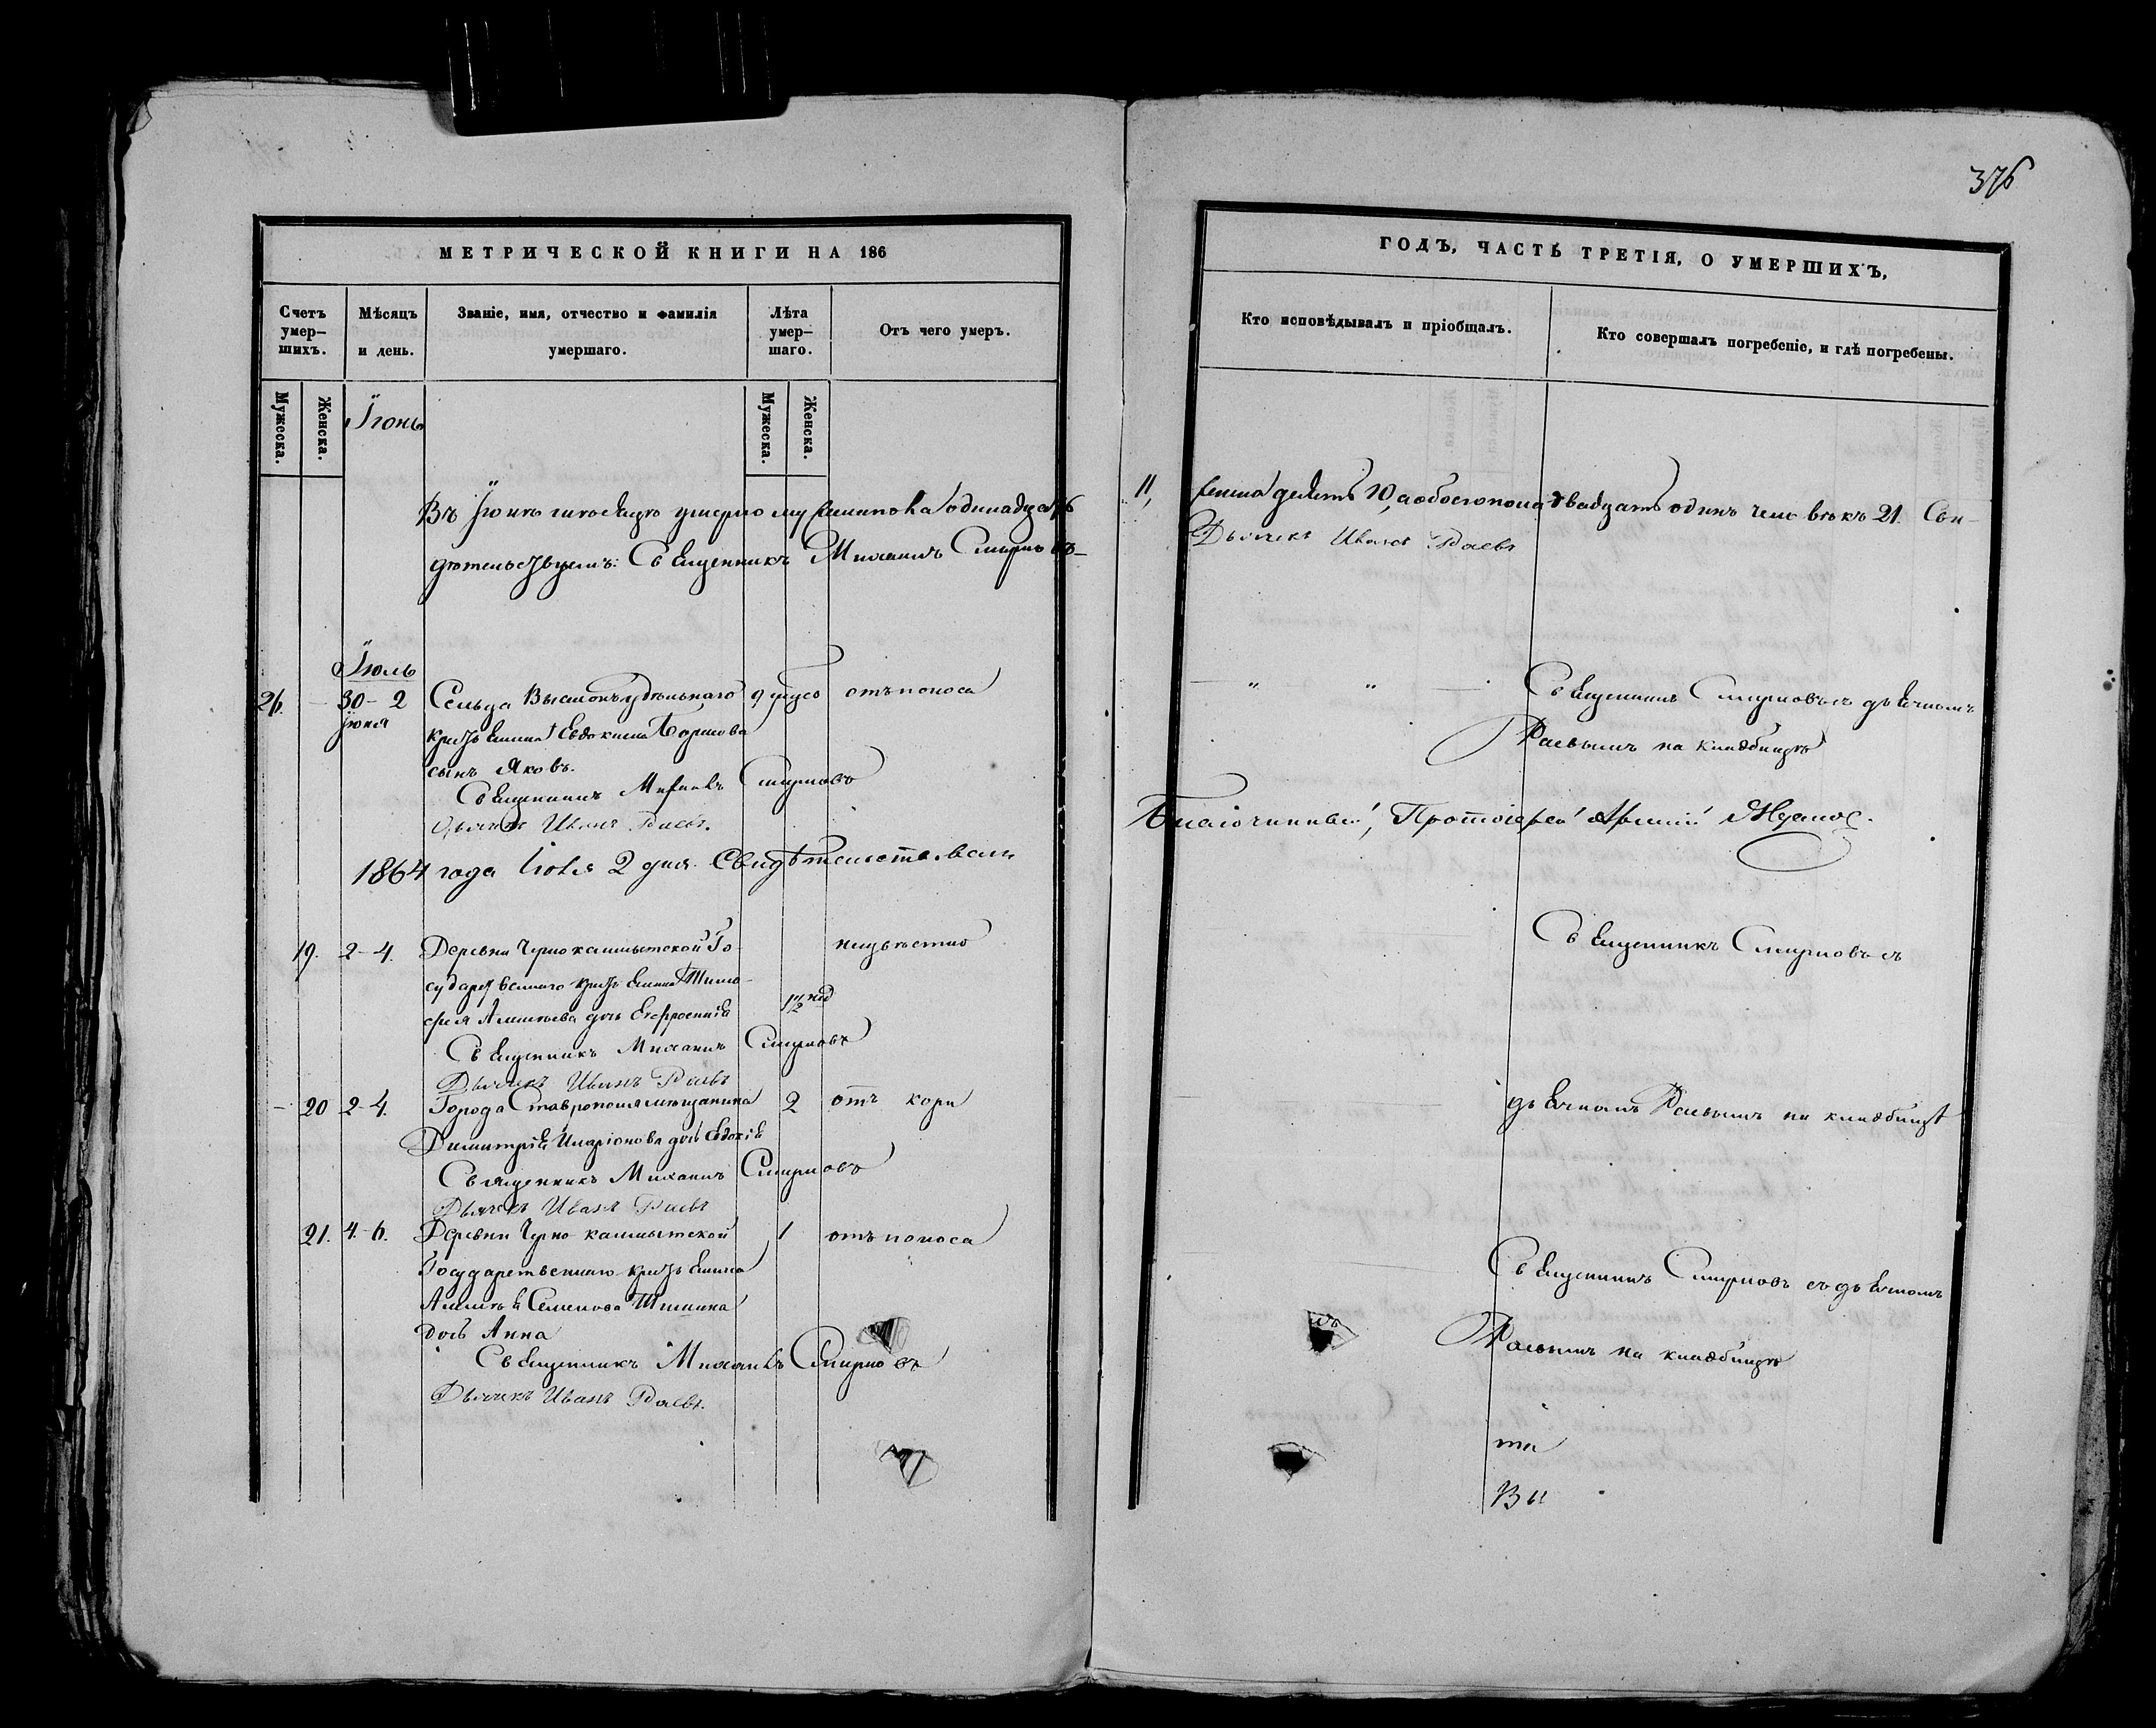 376
МЕТРИЧЕСКОЙ КНИГИ НА 186
ГОДЪ, ЧАСТЬ ТРЕТІЯ, О УМЕРШИХЪ,
Счетъ умер-
шихъ.
Мѣсяцъ
и день.
Званіе, имя, отчество и фамилія
умершаго.
Лѣта
умер-
шаго.
Отъ чего умеръ.
Кто исповѣдывалъ и пріобщалъ.
Кто совершалъ погребеніе, и гдѣ погребены.
Мужеска.
Женска.
Мужеска.
Женска.
Іюнь
Въ Іюнѣ мѣсяцѣ умерло мужеска пола одинадцать
11, женска десять 10, а обоего пола двадцать одинъ человѣкъ 21. Сви-
дѣтельствуемъ: Священникъ Михаилъ Смирновъ
Дьячекъ Иванъ Раевъ
Іюль
26. 30 - 2
іюня
Сельца удѣльнаго 9 отъ поноса
крестьянина Евдокима
сынъ Яковъ.
Священникъ Смирновъ съ дьячкомъ
Раевымъ на кладбищѣ
Священникъ Михаилъ Смирновъ
Дьячекъ Иванъ Раевъ.
1864 года Іюля 2 дня. Свидѣтельствовалъ
Благочинный, Протоіерей
19. 2 - 4. Деревни Чернокалмытской Го-
сударственнаго крестьянина Тимо-
фея дочь Евфросинія
1 1/2 нед
неизвѣстно
Священникъ Смирновъ съ
Священникъ Михаилъ Смирновъ
Дьячекъ Иванъ Раевъ
20 2 - 4. Города Ставрополя мѣщанина 2 отъ кори
Димитрія Иларіонова дочь Евдокія
дьячкомъ Раевымъ на кладбищѣ
Священникъ Михаилъ Смирновъ
Дьячекъ Иванъ Раевъ
21. 4 - 6. Деревни Черно-калмытской 1 отъ поноса
Государственнаго крестьянина
Алексѣя Семенова
дочь Анна
Священникъ Смирновъ съ дьячкомъ
Раевымъ на кладбищѣ
Священникъ Михаилъ Смирновъ
Дьячекъ Иванъ Раевъ.